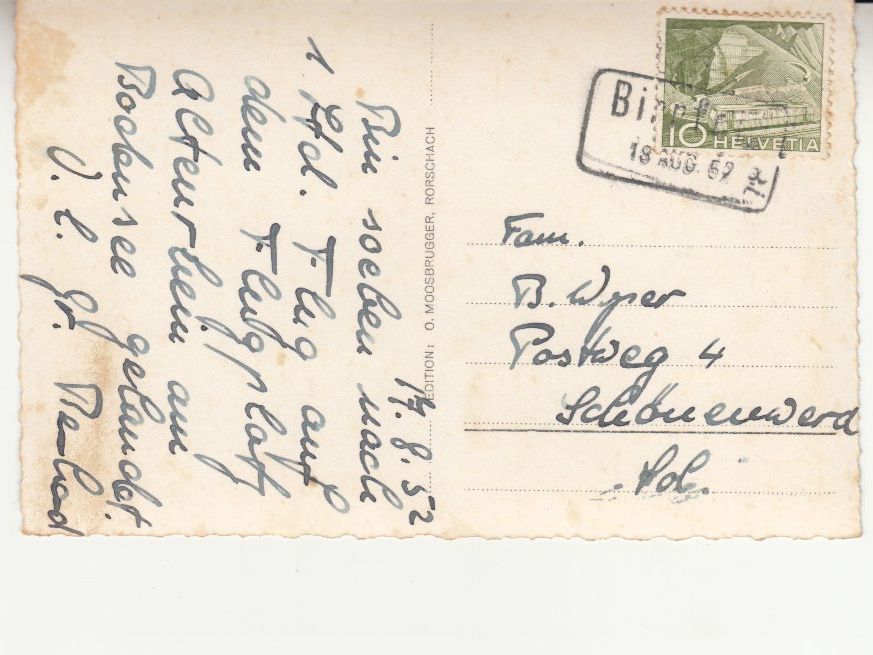 17.8.52
Bin soeben nach
1 Std. Flug auf
dem Flugplatz
Altenrhein am
Bodensee gelandet.
V. l. Gr.
EDITION: O. MOOSBRUGGER, RORSCHACH
10 HELVETIA
18 AUG. 52
Fam.
B. Wyser
Postweg 4
Schönenwerd
Sol.